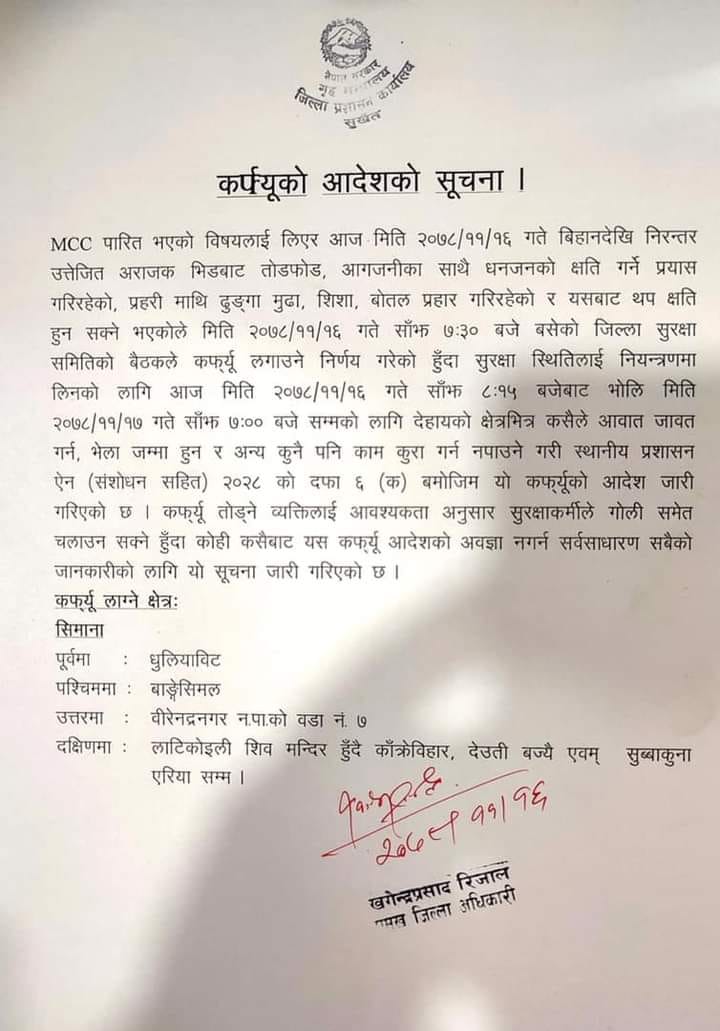 नेपाल सरकार
गृह मन्त्रालय
जिल्ला प्रशासन कार्यालय
सुर्खेत
कर्फ्यूको आदेशको सूचना ।
MCC पारित भएको विषयलाई लिएर आज मिति २०७८/११/१६ गते बिहानदेखि निरन्तर
उत्तेजित अराजक भिडबाट तोडफोड, आगजनीका साथै धनजनको क्षति गर्ने प्रयास
गरिरहेको, प्रहरी माथि ढुङ्गा मुढा, शिशा, बोतल प्रहार गरिरहेको र यसबाट थप क्षति
हुन सक्ने भएकोले मिति २०७८/११/१६ गते साँझ ७:३० बजे बसेको जिल्ला सुरक्षा
समितिको बैठकले कर्फ्यू लगाउने निर्णय गरेको हुँदा सुरक्षा स्थितिलाई नियन्त्रणमा
लिनको लागि आज मिति २०७८/११/१६ गते साँझ ८:१५ बजेबाट भोलि मिति
२०७८/११/१७ गते साँझ ७:०० बजे सम्मको लागि देहायको क्षेत्रभित्र कसैले आवात जावत
गर्न, भेला जम्मा हुन र अन्य कुनै पनि काम कुरा गर्न नपाउने गरी स्थानीय प्रशासन
ऐन (संशोधन सहित) २०२८ को दफा ६ (क) बमोजिम यो कर्फ्यूको आदेश जारी
गरिएको छ । कर्फ्यू तोड्ने व्यक्तिलाई आवश्यकता अनुसार सुरक्षाकर्मीले गोली समेत
चलाउन सक्ने हुँदा कोही कसैबाट यस कर्फ्यू आदेशको अवज्ञा नगर्न सर्वसाधारण सबैको
जानकारीको लागि यो सूचना जारी गरिएको छ ।
कर्फ्यू लाग्ने क्षेत्रः
सिमाना
पूर्वमा : धुलियाविट
पश्चिममा : बाङ्गेसिमल
उत्तरमा : वीरेनद्रनगर न.पा.को वडा नं. ७
दक्षिणमा : लाटिकोइली शिव मन्दिर हुँदै काँक्रेविहार, देउती बज्यै एवम् सुब्बाकुना
एरिया सम्म ।
२०७८।११।१६
खगेन्द्रप्रसाद रिजाल
प्रमुख जिल्ला अधिकारी